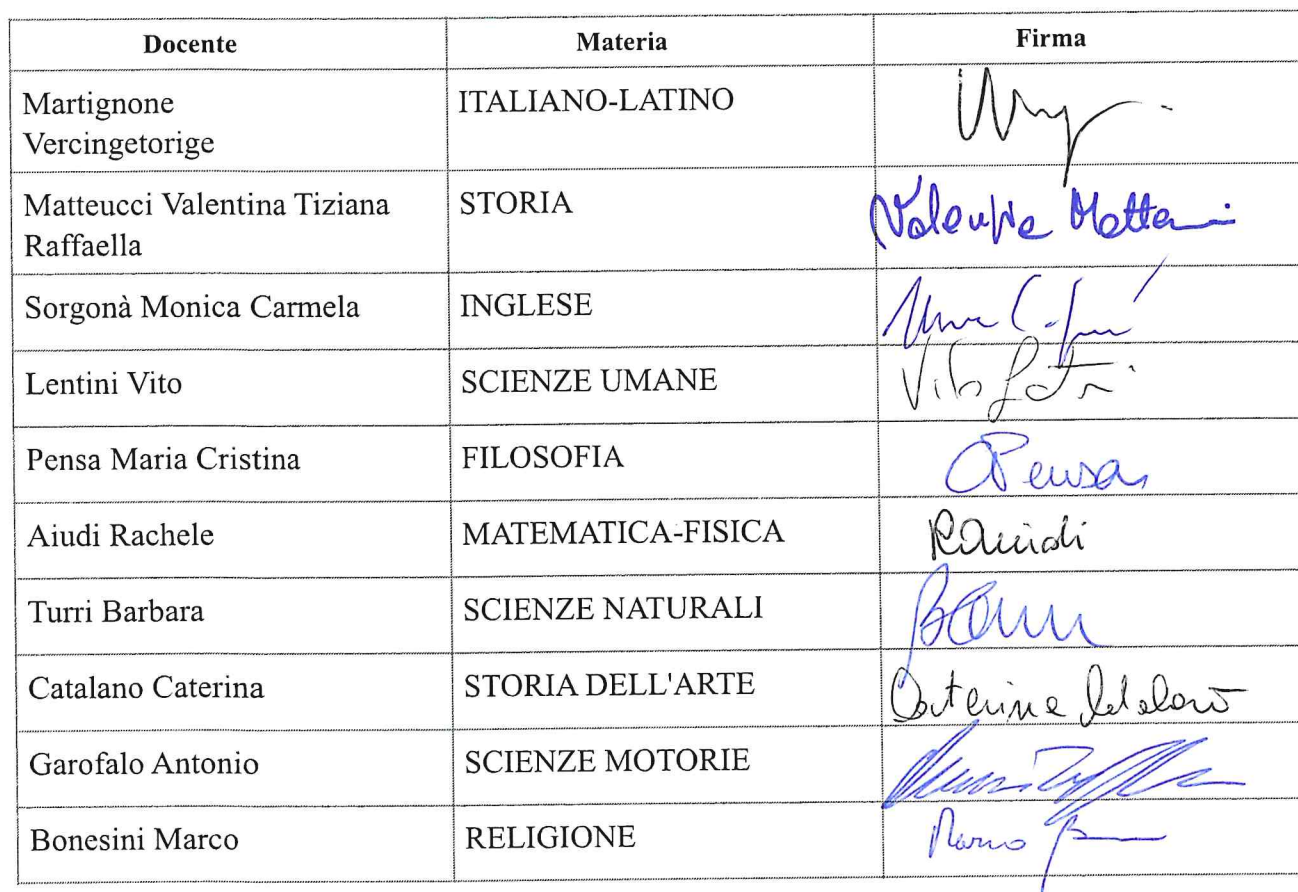 Docente Materia Firma
Martignone ITALIANO-LATINO
Vercingetorige
Matteucci Valentina Tiziana STORIA
Raffaella
Sorgonà Monica Carmela INGLESE
Lentini Vito SCIENZE UMANE Vito
Pensa Maria Cristina FILOSOFIA CPensa
Aiudi Rachele MATEMATICA-FISICA RAiudi
Turri Barbara SCIENZE NATURALI
Catalano Caterina STORIA DELL'ARTE Caterina Catalano
Garofalo Antonio SCIENZE MOTORIE
Bonesini Marco RELIGIONE Marco